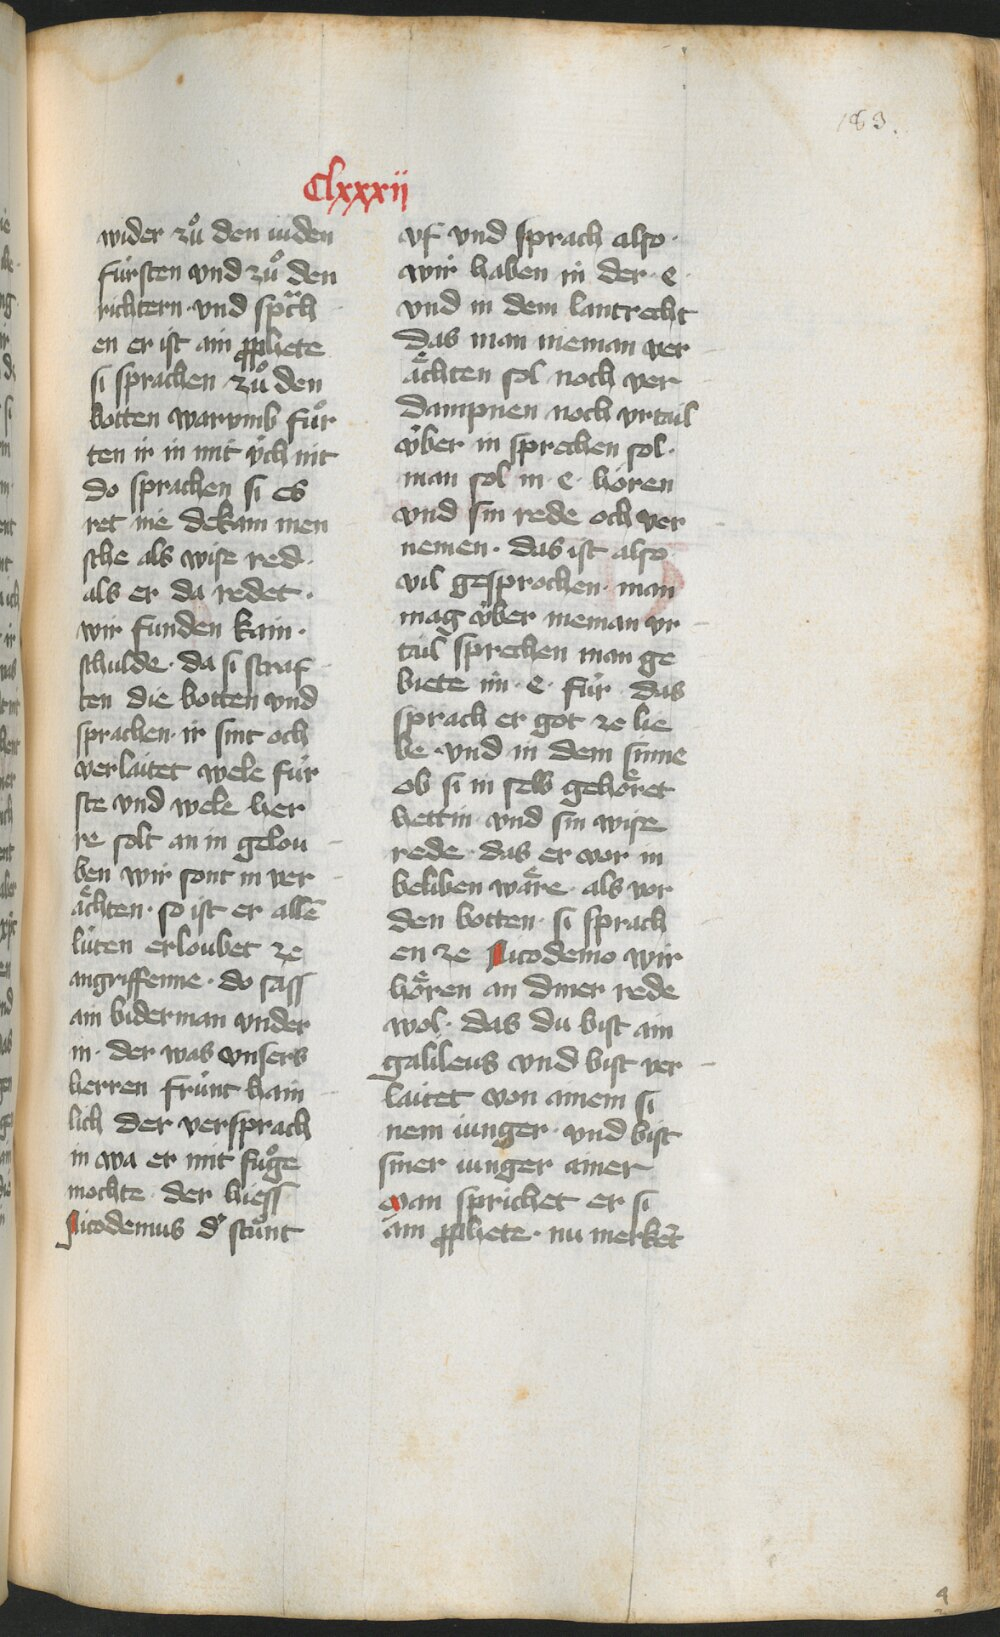 183.
Clxxxii
wider zuͦ den iuden
fürsten vnd zuͦ den
richtern · vnd sprach
en er ist ain prophete
si sprachen zuͦ den
botten warvmb fuͦr
ten ir in mit v̈ch nit
do sprachen si es
ret nie dekain men
sche als wise red ·
als er da redet ·
wir funden kain ·
schulde · da si straf
ten die botten vnd
sprachen · ir sint och
verlaitet wele für
ste vnd wele her
re solt an in gelou
ben wir sont in ver
aͤchten · so ist er allē
lüten erloubet ze
angriffenne · do sass
ain biderman vnder
in · der was vnsers
herren frünt hain
lich der versprach
in wa er mit fuͦge
mochte · der hiess
Nicodemus d' stuͦnt
vf vnd sprach also ·
wir haben in der · e ·
vnd in dem lantrecht
das man nieman ver
aͤchten sol noch ver
dampnen noch vrtail
v̈ber in sprechen sol ·
man sol in · e · hören
vnd sin rede och ver
nemen · das ist also
vil gesprochen · man
mag v̈ber nieman vr
tail sprechen man ge
biete im · e · für · das
sprach er got ze lie
be · vnd in dem sinne
ob si in selb gehoͤret
hettin · vnd sin wise
rede · das er vor in
beliben waͤre · als vor
den botten · si sprach
en ze Nicodemo wir
hoͤren an diner rede
wol · das du bist ain
galileus vnd bist ver
laitet von ainem si
nem iunger · vnd bist
siner iunger ainer
wan sprichet er si
ain prophete · nu merkēt